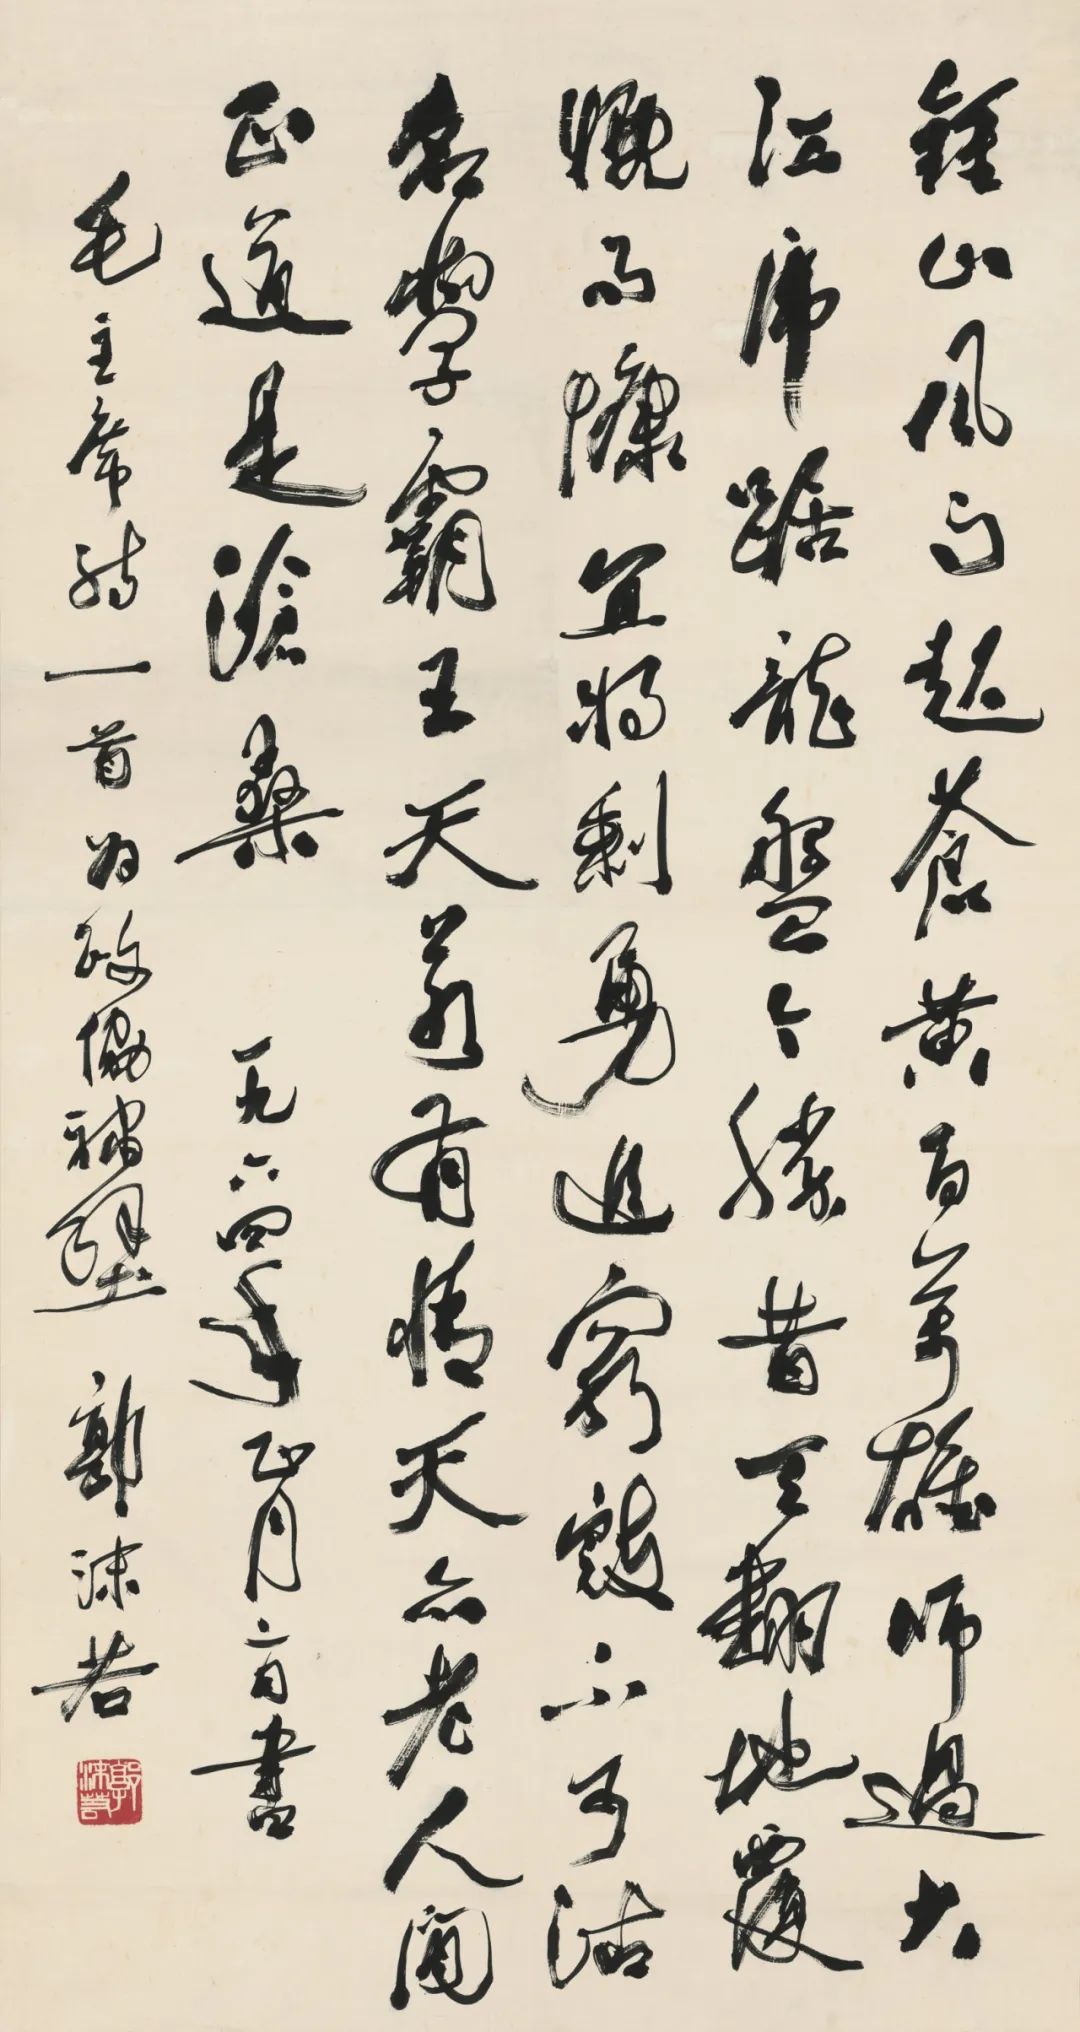 鍾山風雨起蒼黃百萬雄師過大
江虎踞龍盤今勝昔天翻地覆
慨而慷宜將剩勇追窮寇不可沽
名學霸王天若有情天亦老人間
正道是滄桑 一九六四年正月日書
毛主席詩一首為政協補壁 郭沫若
郭沫若